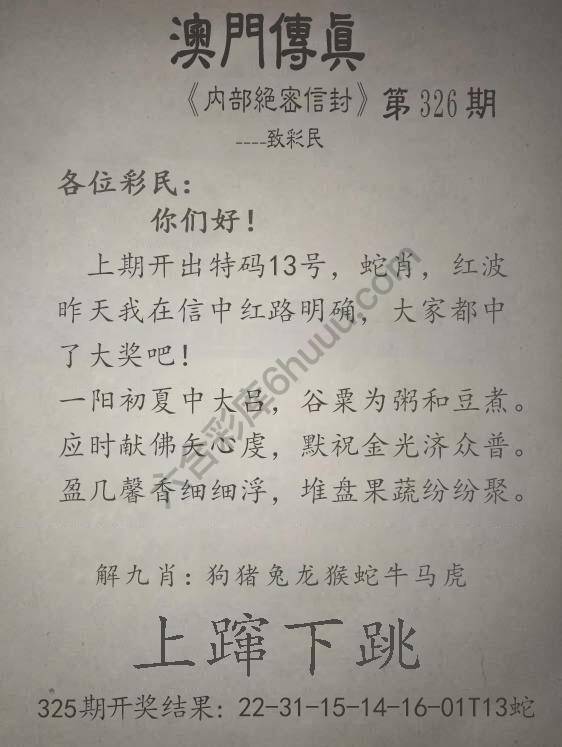 澳門傳眞
《内部絕密信封》第326期
----致彩民
各位彩民：
你们好！
上期开出特码13号，蛇肖，红波
昨天我在信中红路明确，大家都中
了大奖吧！
一阳初夏中大吕，谷粟为粥和豆煮。
应时献佛矢心虔，默祝金光济众普。
盈几馨香细细浮，堆盘果蔬纷纷聚。
解九肖：狗猪兔龙猴蛇牛马虎
上蹿下跳
325期开奖结果：22-31-15-14-16-01T13蛇
六合彩库6huuu.com